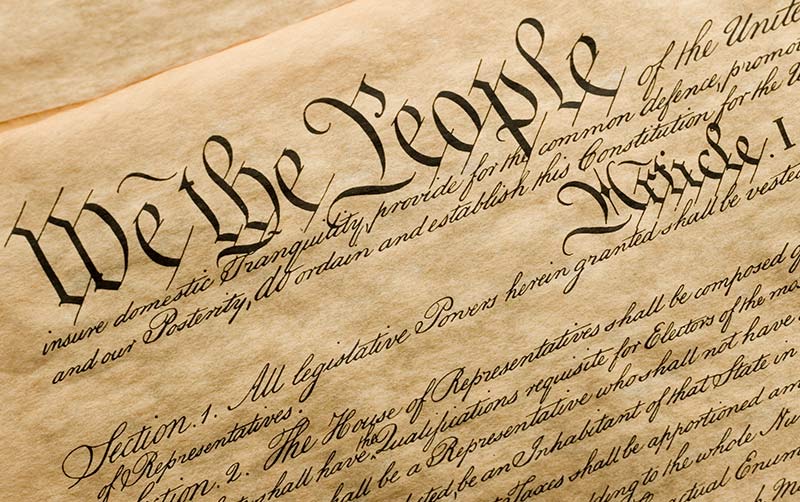 We the People of the Unite
insure domestic Tranquility, provide for the common defence, promo
and our Posterity, do ordain and establish this Constitution for the U
Article. I
Section. 1. All legislative Powers herein granted shall be vested
of Representatives.
ction. 2. The House of Representatives shall be composed
shall have the Qualifications requisite for Electors of the mo
shall be a Representative who shall not have
ted, be an Inhabitant of that State in
Taxes shall be apportioned am
ding to the whole Nu
actual Enum